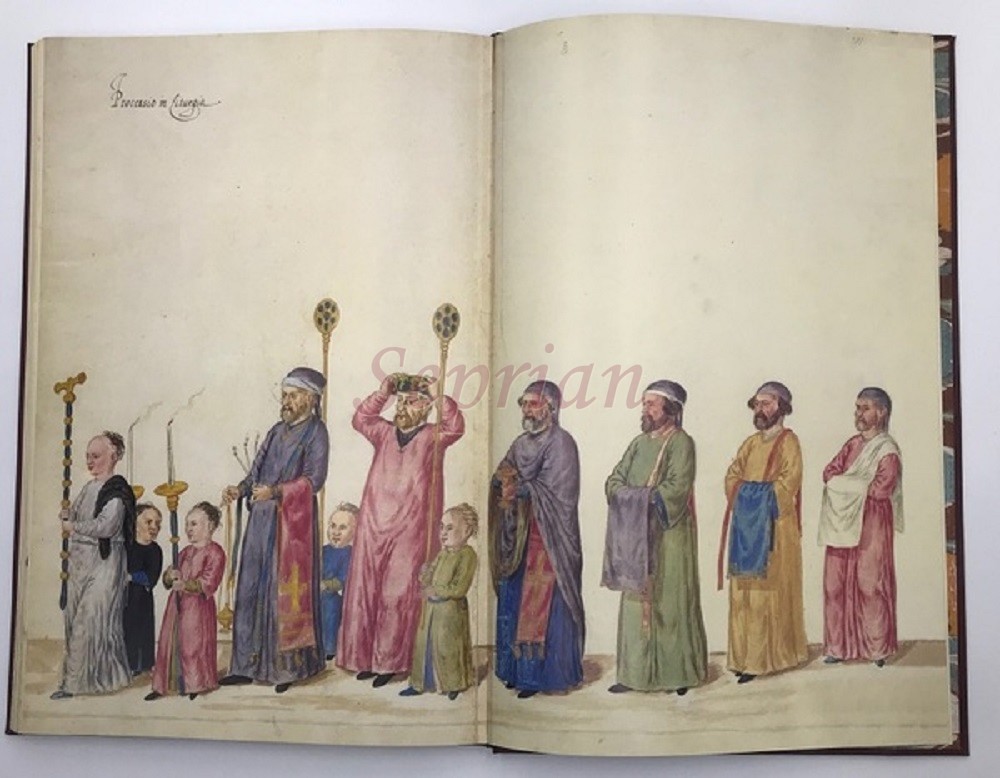 Processio in Liturgia
Seprian